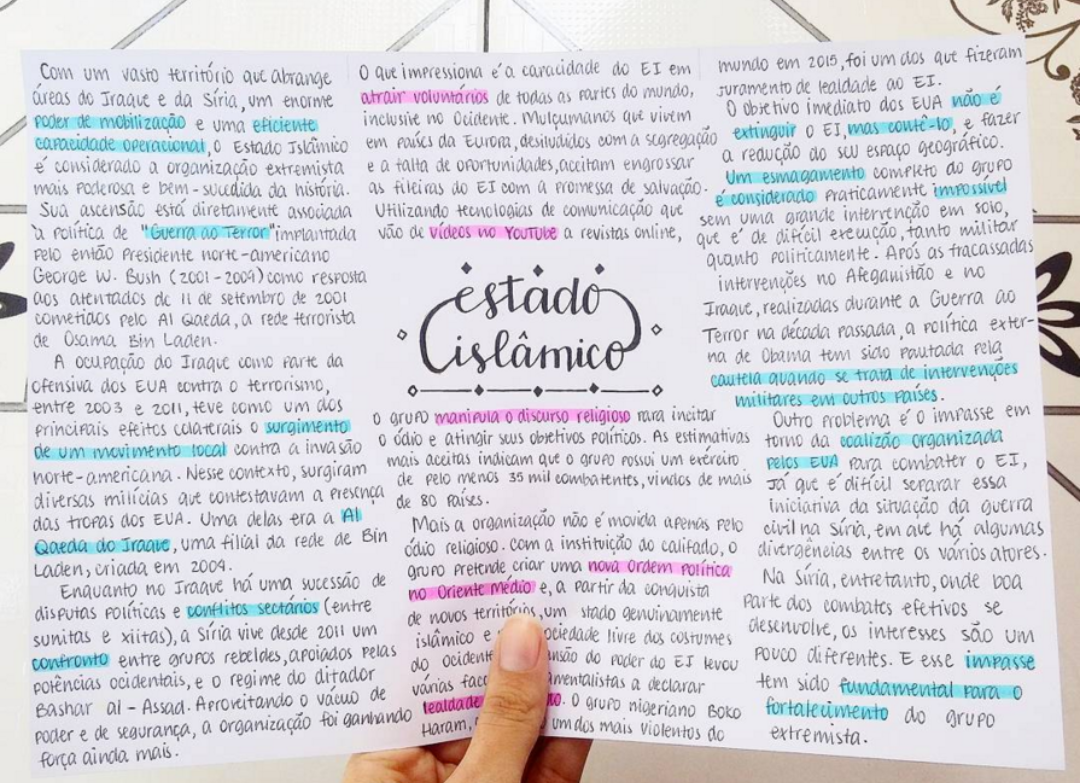 Com um vasto território que abrange
áreas do Iraque e da Síria, um enorme
poder de mobilização e uma eficiente
capacidade operacional, o Estado Islâmico
é considerado a organização extremista
mais poderosa e bem-sucedida da história.
Sua ascensão está diretamente associada
à política de "Guerra ao Terror" implantada
pelo então Presidente norte-americano
George W. Bush (2001-2009) como resposta
aos atentados de 11 de setembro de 2001
cometidos pelo Al Qaeda, a rede terrorista
de Osama Bin Laden.
A ocupação do Iraque como parte da
ofensiva dos EUA contra o terrorismo,
entre 2003 e 2011, teve como um dos
principais efeitos colaterais o surgimento
de um movimento local contra a invasão
norte-americana. Nesse contexto, surgiram
diversas milícias que contestavam a presença
das tropas dos EUA. Uma delas era a Al
Qaeda do Iraque, uma filial da rede de Bin
Laden, criada em 2004.
Enquanto no Iraque há uma sucessão de
disputas políticas e conflitos sectários (entre
sunitas e xiitas), a Síria vive desde 2011 um
confronto entre grupos rebeldes, apoiados pelas
potências ocidentais, e o regime do ditador
Bashar al-Assad. Aproveitando o vácuo de
poder e de segurança, a organização foi ganhando
força ainda mais.
O que impressiona é a capacidade do EI em
atrair voluntários de todas as partes do mundo,
inclusive no Ocidente. Mulçumanos que vivem
em países da Europa, desiludidos com a segregação
e a falta de oportunidades, aceitam engrossar
as fileiras do EI com a promessa de salvação.
Utilizando tecnologias de comunicação que
vão de vídeos no YouTube a revistas online,
estado
islâmico
o grupo manipula o discurso religioso para incitar
o ódio e atingir seus objetivos políticos. As estimativas
mais aceitas indicam que o grupo possui um exército
de pelo menos 35 mil combatentes, vindos de mais
de 80 países.
Mais a organização não é movida apenas pelo
ódio religioso. Com a instituição do califado, o
grupo pretende criar uma nova Ordem política
no Oriente Médio e, a partir da conquista
de novos territórios, um stado genuinamente
islâmico e ociedade livre dos costumes
do Ocidente nsão do poder do EI levou
várias fac amentalistas a declarar
lealdade o. O grupo nigeriano Boko
Haram, um dos mais violentos do
mundo em 2015, foi um dos que fizeram
juramento de lealdade ao EI.
O objetivo imediato dos EUA não é
extinguir o EI, mas contê-lo, e fazer
a redução do seu espaço geográfico.
Um esmagamento completo do grupo
é considerado praticamente impossível
sem uma grande intervenção em solo,
que é de difícil execução, tanto militar
quanto politicamente. Após as fracassadas
intervenções no Afeganistão e no
Iraque, realizadas durante a Guerra ao
Terror na década passada, a política exter-
na de Obama tem sido pautada pela
cautela quando se trata de intervenções
militares em outros países.
Outro problema é o impasse em
torno da coalizão organizada
pelos EUA para combater o EI,
já que é difícil separar essa
iniciativa da situação da guerra
civil na Síria, em que há algumas
divergências entre os vários atores.
Na Síria, entretanto, onde boa
parte dos combates efetivos se
desenvolve, os interesses são um
pouco diferentes. E esse impasse
tem sido fundamental para o
fortalecimento do grupo
extremista.